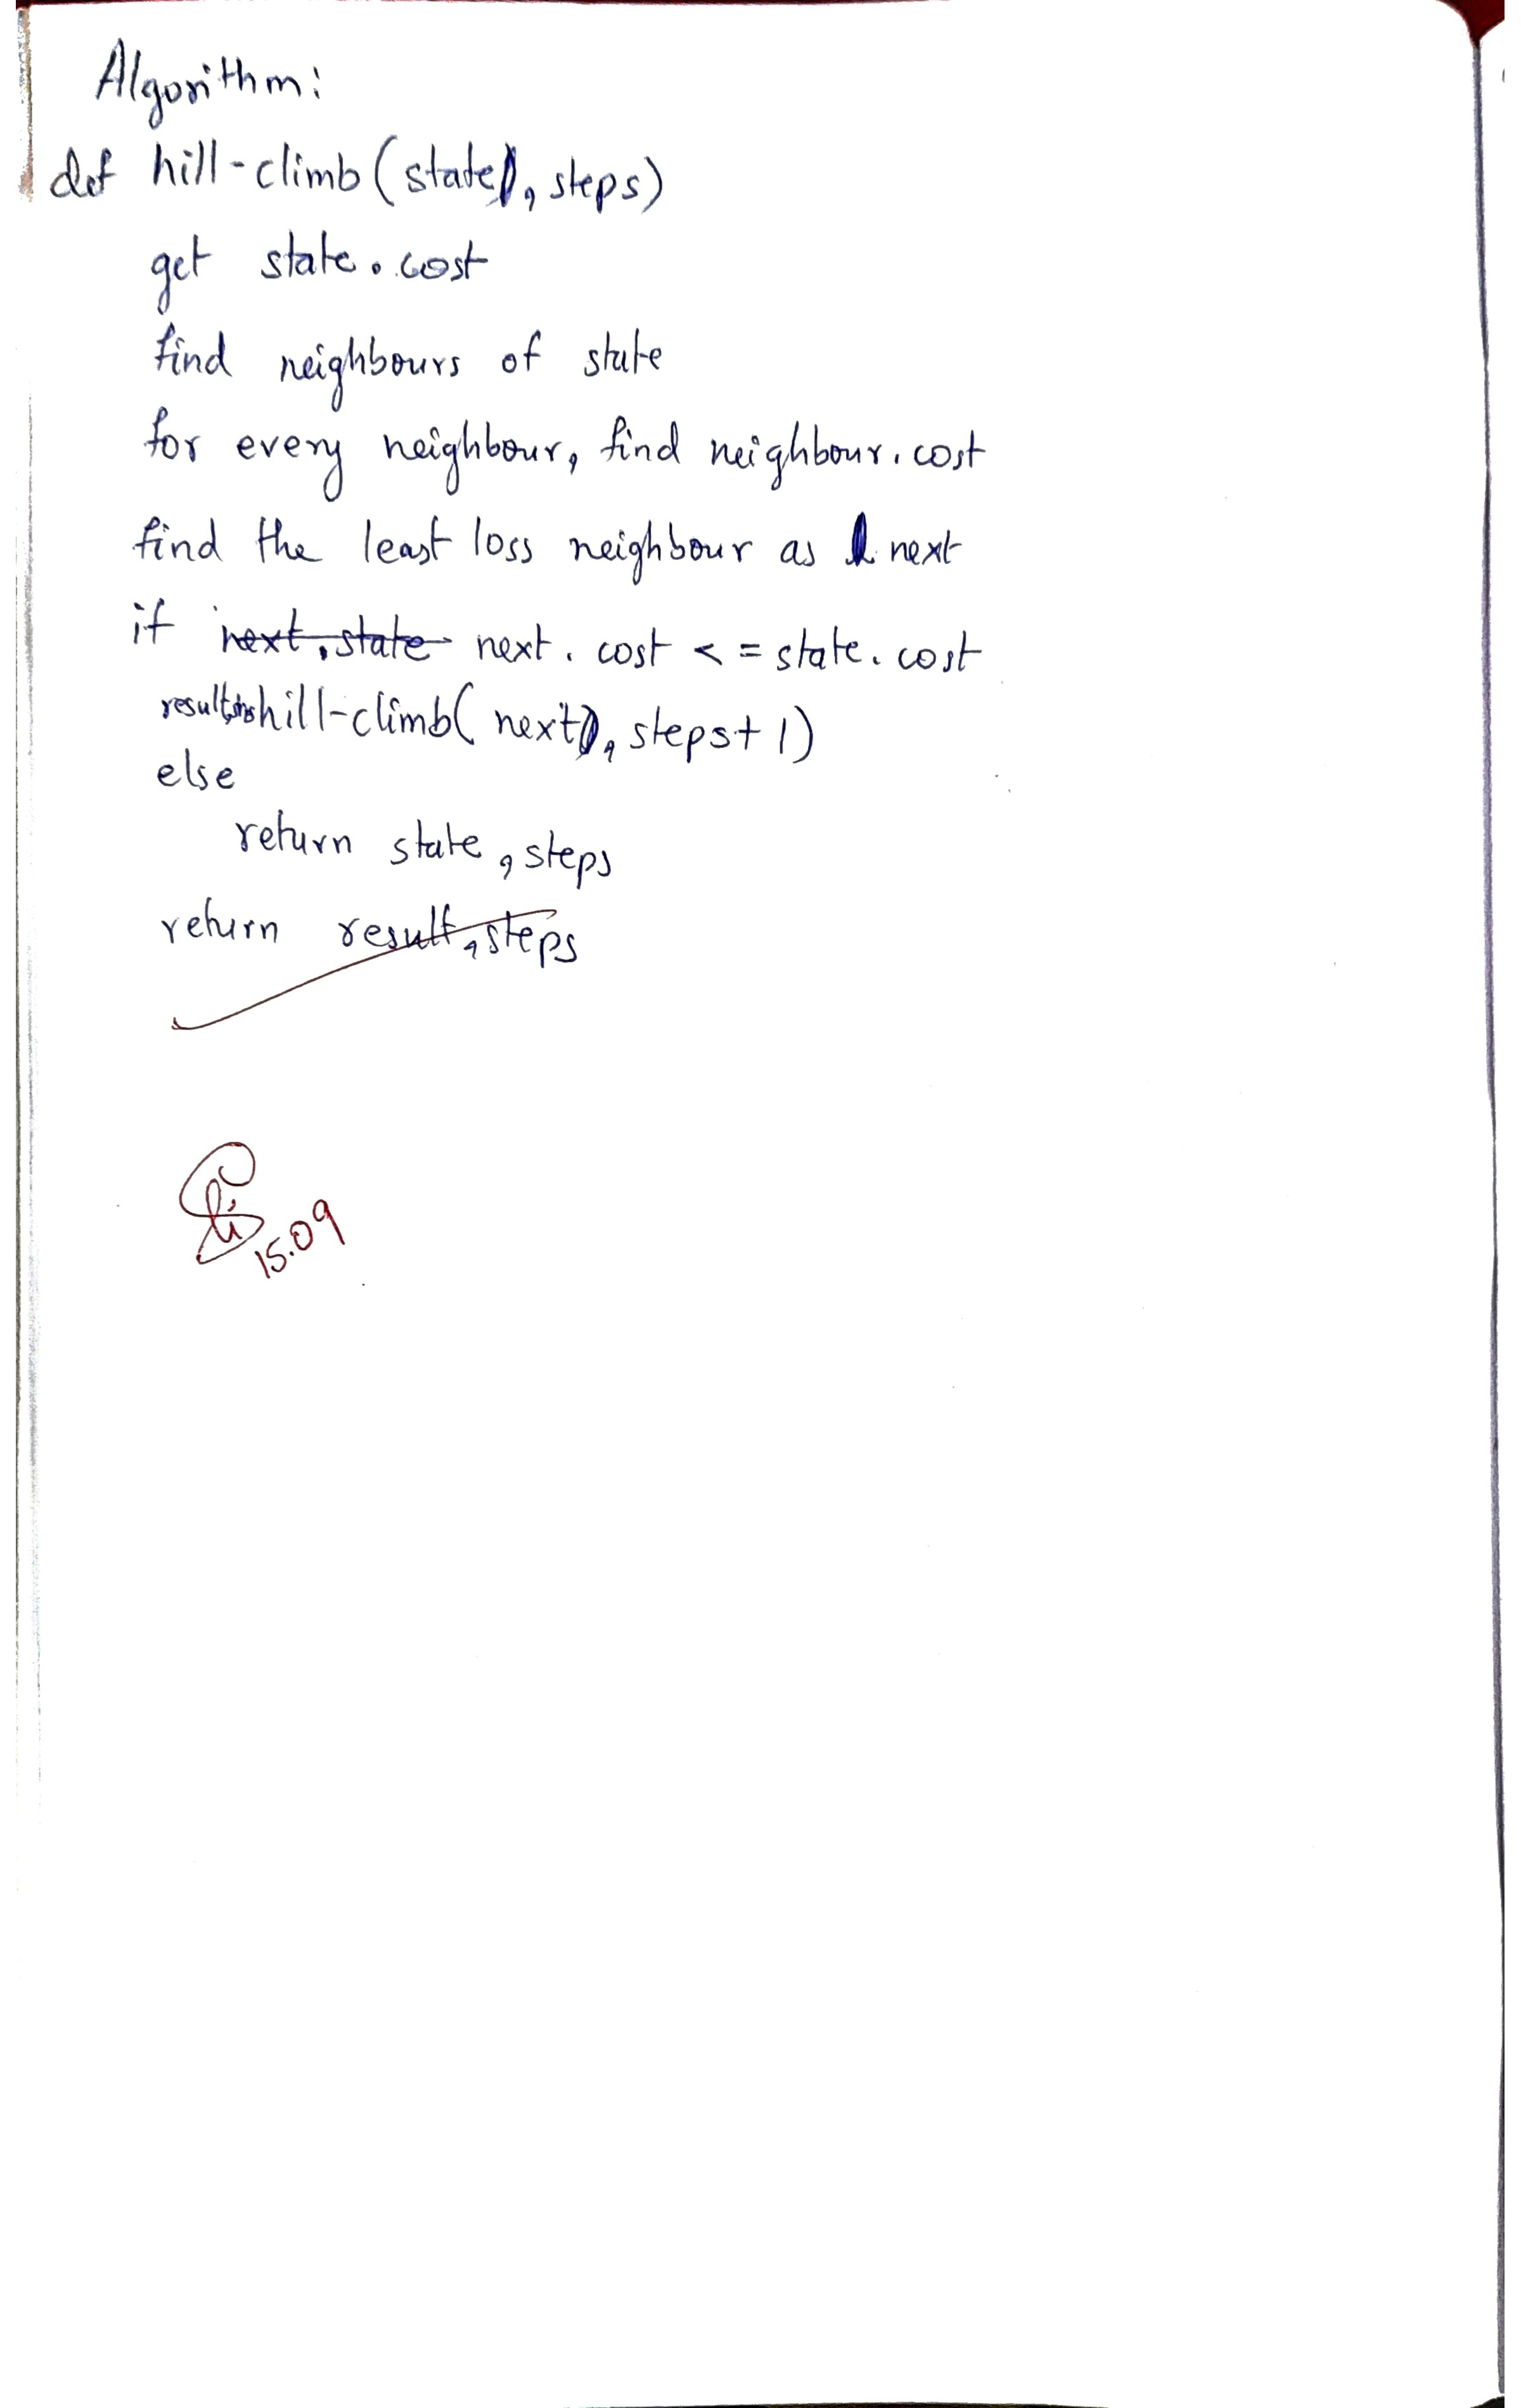 Algorithm:
def hill-climb(state, steps)
get state.cost
find neighbours of state
for every neighbour, find neighbour.cost
find the least loss neighbour as next
if next.state next.cost <= state.cost
result hill-climb(next, steps+1)
else
return state, steps
return result, steps
15.09